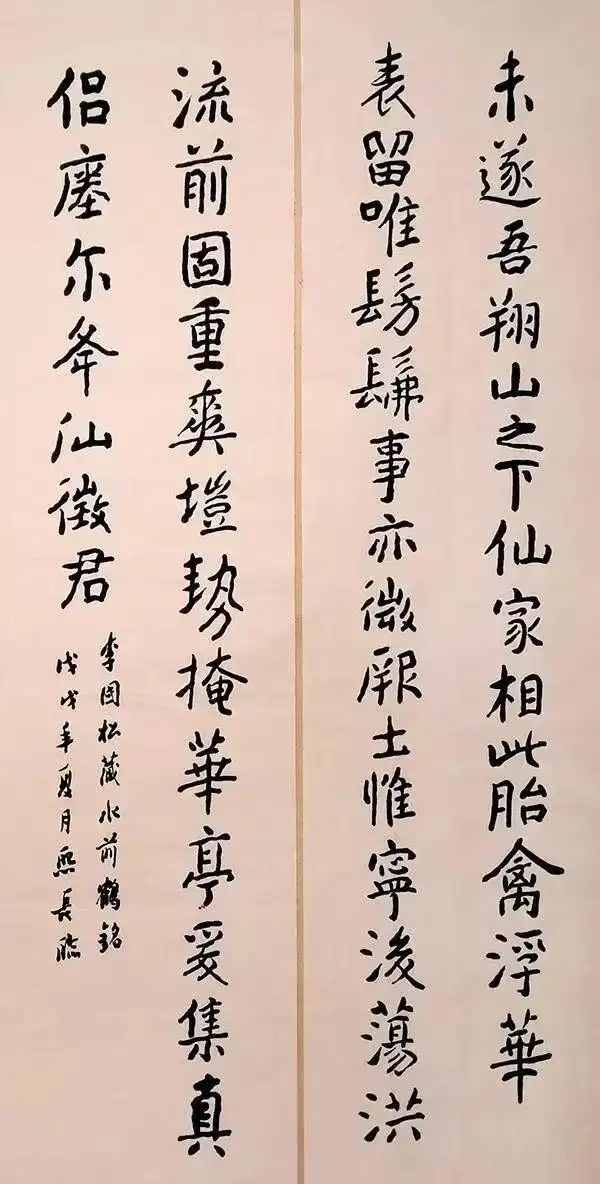 未遂吾翔山之下仙家相此胎禽浮華
表留唯髣髴事亦微厥土惟寧後蕩洪
流前固重爽塏勢掩華亭爰集真
侶瘞尔夅汕徵君
李国松藏水前鶴銘
戊戌年夏月熙長臨